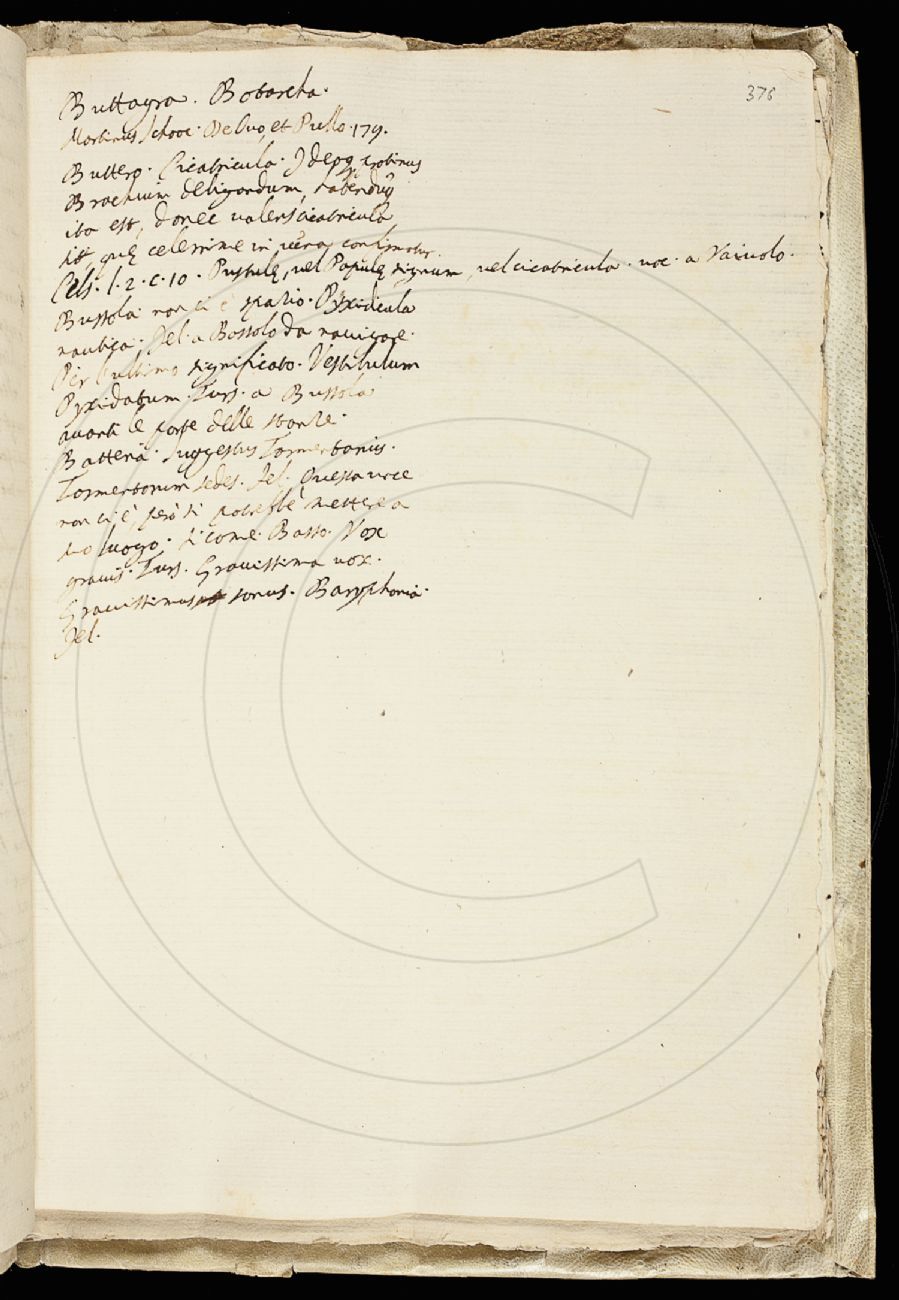 376
Buttagra. Botarcha.
Martinus Schooc. De Ovo, et Pullo. 179.
Buttero. Cicatricula. Ideoq; protinus
Brachium deligandum, habendūq;
ita est, donec valens cicatricula
sit quę celerrime in vena confirmatur.
Cels. l. 2. c. 10. Pustulę, vel Papulę signum, vel cicatricula. voc. a Vaiuolo.
Bussola non ci è spazio. Pyxidicula
nautica. Fel. a Bossolo da nauigare.
Per l'ultimo significato. Vestibulum
Pyxidatum. Turs. a Bussola
auanti le porte delle stanze.
Batteria. Suggestus Tormentarius.
Tormentorum sedes. Fel. Questa voce
non ci è, però si potrebbe mettere a
suo luogo. Si come. Basso. Vox
grauis. Turs. Grauissima vox.
Grauissimus sonus. Baryphonia.
Fel.